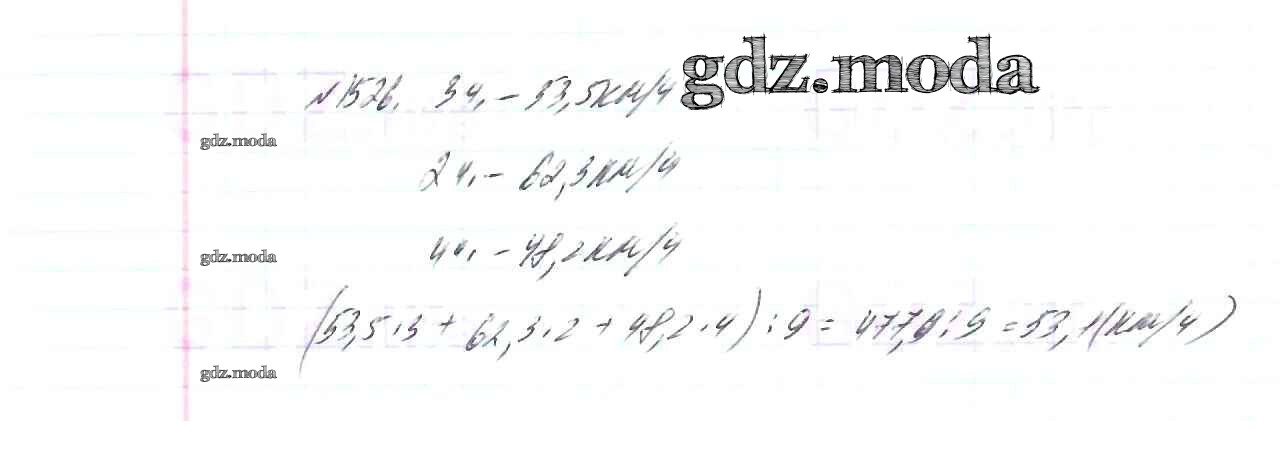 №1526. 3ч. – 53,5км/ч gdz.moda
gdz.moda
2ч. – 62,3км/ч
4ч. – 48,2км/ч
gdz.moda
(53,5·3 + 62,3·2 + 48,2·4) : 9 = 477,9:9 = 53,1(км/ч)
gdz.moda